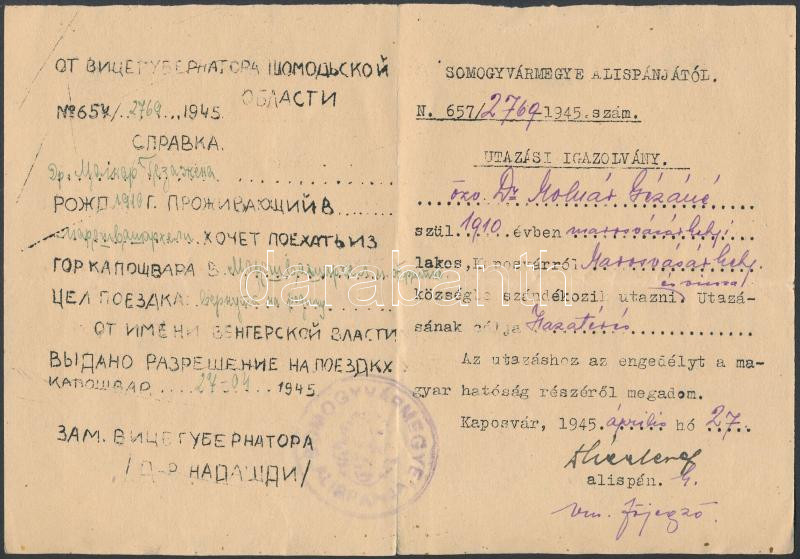 ОТ ВИЦЕГУБЕРНАТОРА ШОМОДЬСКОЙ
ОБЛАСТИ
№654/. 2769 ..,1945.
СПРАВКА.
Др. Малнар Гезажена
РОЖД 1910 Г. ПРОЖИВАЮЩИЙ В
ХОЧЕТ ПОЕХАТЬ ИЗ
ГОР КАПОШВАРА В
ЦЕЛ ПОЕЗДКА:
ОТ ИМЕНИ ВЕНГЕРСКОЙ ВЛАСТИ
ВЫДАНО РАЗРЕШЕНИЕ НА ПОЕЗДКХ
КАПОШВАР. ... 27-04 . 1945.
ЗАМ. ВИЦЕГУБЕРНАТОРА
/Д-Р НАДАШДИ/
SOMOGYVÁRMEGYE ALISPÁNJA
SOMOGYVÁRMEGYE ALISPÁNJÁTÓL.
N. 657/2769-1945.szám.
UTAZÁSI IGAZOLVÁNY.
özv. Dr. Molnár Gézáné
szül.1910.évben marosvásárhelyi
lakos, Kaposvárról Marosvásárhely
és vissza
községbe szándékozik utazni. Utazá-
sának célja Hazatérés
Az utazáshoz az engedélyt a ma-
gyar hatóság részéről megadom.
Kaposvár, 1945. április hó 27.
alispán.
vm. főjegyző.
darabanth